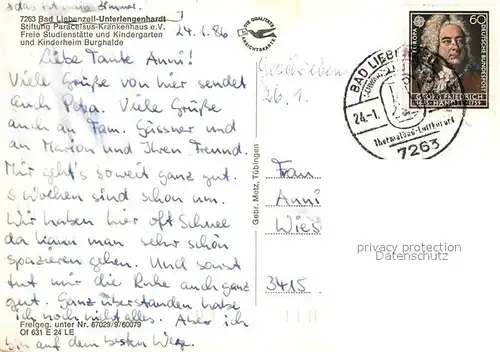 das ist mein Zimmer.
7263 Bad Liebenzell-Unterlengenhardt
Stiftung Paracelsus-Krankenhaus e.V.
Freie Studienstätte und Kindergarten
und Kinderheim Burghalde
24.1.86
Liebe Tante Anni!
Viele Grüße von hier sendet
auch Petra. Viele Grüße
auch an Fam. Gässner und
an Marion und Ihren Freund.
Mir geht's soweit ganz gut.
3 Wochen sind schon um.
Wir haben hier oft Schnee
da kann man sehr schön
spazieren gehen. Und sonst
tut mir die Ruhe auch ganz
gut. Ganz überstanden habe
ich noch nicht alles. Aber ich
bin auf dem besten Wege.
Freigeg. unter Nr. 67029/9/60079
Of 631 E 24 LE
Gebr. Metz, Tübingen
Geschrieben
26.1.
EUROPA
60
DEUTSCHE BUNDESPOST
GEORG FRIEDRICH
1685 HÄNDEL 1759
BAD LIEBENZELL
24.-1.
Thermalbad-Luftkurort
7263
Frau
Anni
Wies
3415
privacy protection
Datenschutz